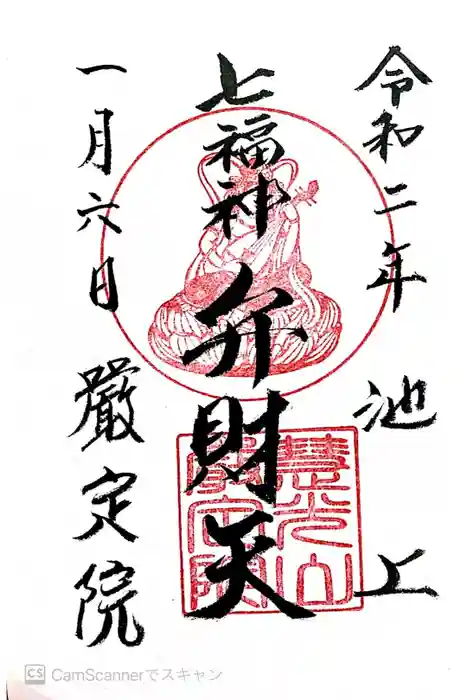 令和二年 池上
七福神 弁財天
慧光山
厳定院
一月六日 嚴定院
CS CamScannerでスキャン